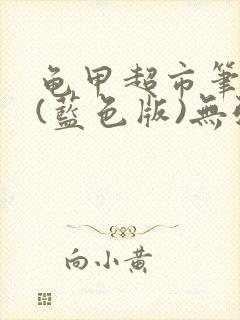 龟甲超市筆
(藍色版)無
向小黄